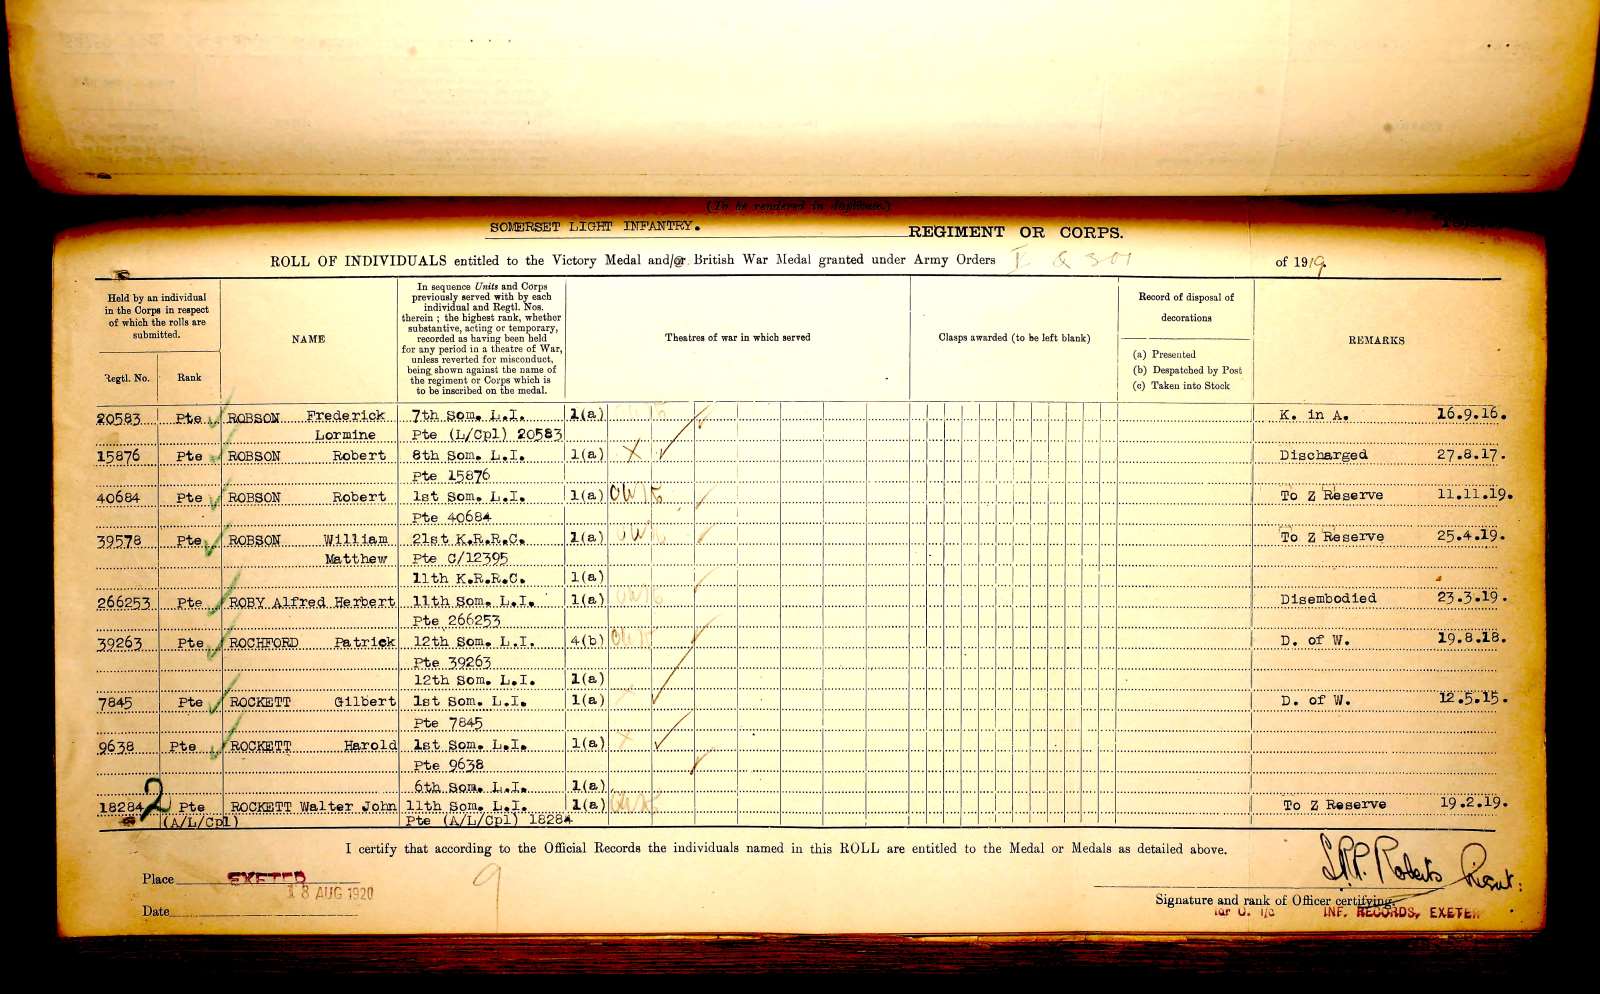 (To be rendered in duplicate.)
SOMERSET LIGHT INFANTRY. REGIMENT OR CORPS.
ROLL OF INDIVIDUALS entitled to the Victory Medal and/or British War Medal granted under Army Orders I & 301 of 1919
Held by an individual in the Corps in respect of which the rolls are submitted.
Regtl. No. Rank
NAME
In sequence Units and Corps
previously served with by each
individual and Regtl. Nos.
therein ; the highest rank, whether
substantive, acting or temporary,
recorded as having been held
for any period in a theatre of War,
unless reverted for misconduct,
being shown against the name of
the regiment or Corps which is
to be inscribed on the medal.
Theatres of war in which served
Clasps awarded (to be left blank)
Record of disposal of
decorations
(a) Presented
(b) Despatched by Post
(c) Taken into Stock
REMARKS
20583 Pte ROBSON Frederick 7th Som. L.I. 1(a) K. in A. 16.9.16.
Lormine Pte (L/Cpl) 20583
15876 Pte ROBSON Robert 8th Som. L.I. 1(a) X Discharged 27.8.17.
Pte 15876
40684 Pte ROBSON Robert 1st Som. L.I. 1(a) To Z Reserve 11.11.19.
Pte 40684
39578 Pte ROBSON William 21st K.R.R.C. 1(a) To Z Reserve 25.4.19.
Matthew Pte C/12395
11th K.R.R.C. 1(a)
266253 Pte ROBY Alfred Herbert 11th Som. L.I. 1(a) Disembodied 23.3.19.
Pte 266253
39263 Pte ROCHFORD Patrick 12th Som. L.I. 4(b) D. of W. 19.8.18.
Pte 39263
12th Som. L.I. 1(a)
7845 Pte ROCKETT Gilbert 1st Som. L.I. 1(a) D. of W. 12.5.15.
Pte 7845
9638 Pte ROCKETT Harold 1st Som. L.I. 1(a) X
Pte 9638
6th Som. L.I. 1(a)
18284 2 Pte ROCKETT Walter John 11th Som. L.I. 1(a) To Z Reserve 19.2.19.
(A/L/Cpl) Pte (A/L/Cpl) 18284
I certify that according to the Official Records the individuals named in this ROLL are entitled to the Medal or Medals as detailed above.
Place EXETER
18 AUG 1920
Date
9
Roberts
Signature and rank of Officer certifying.
for O. i/c INF. RECORDS, EXETER